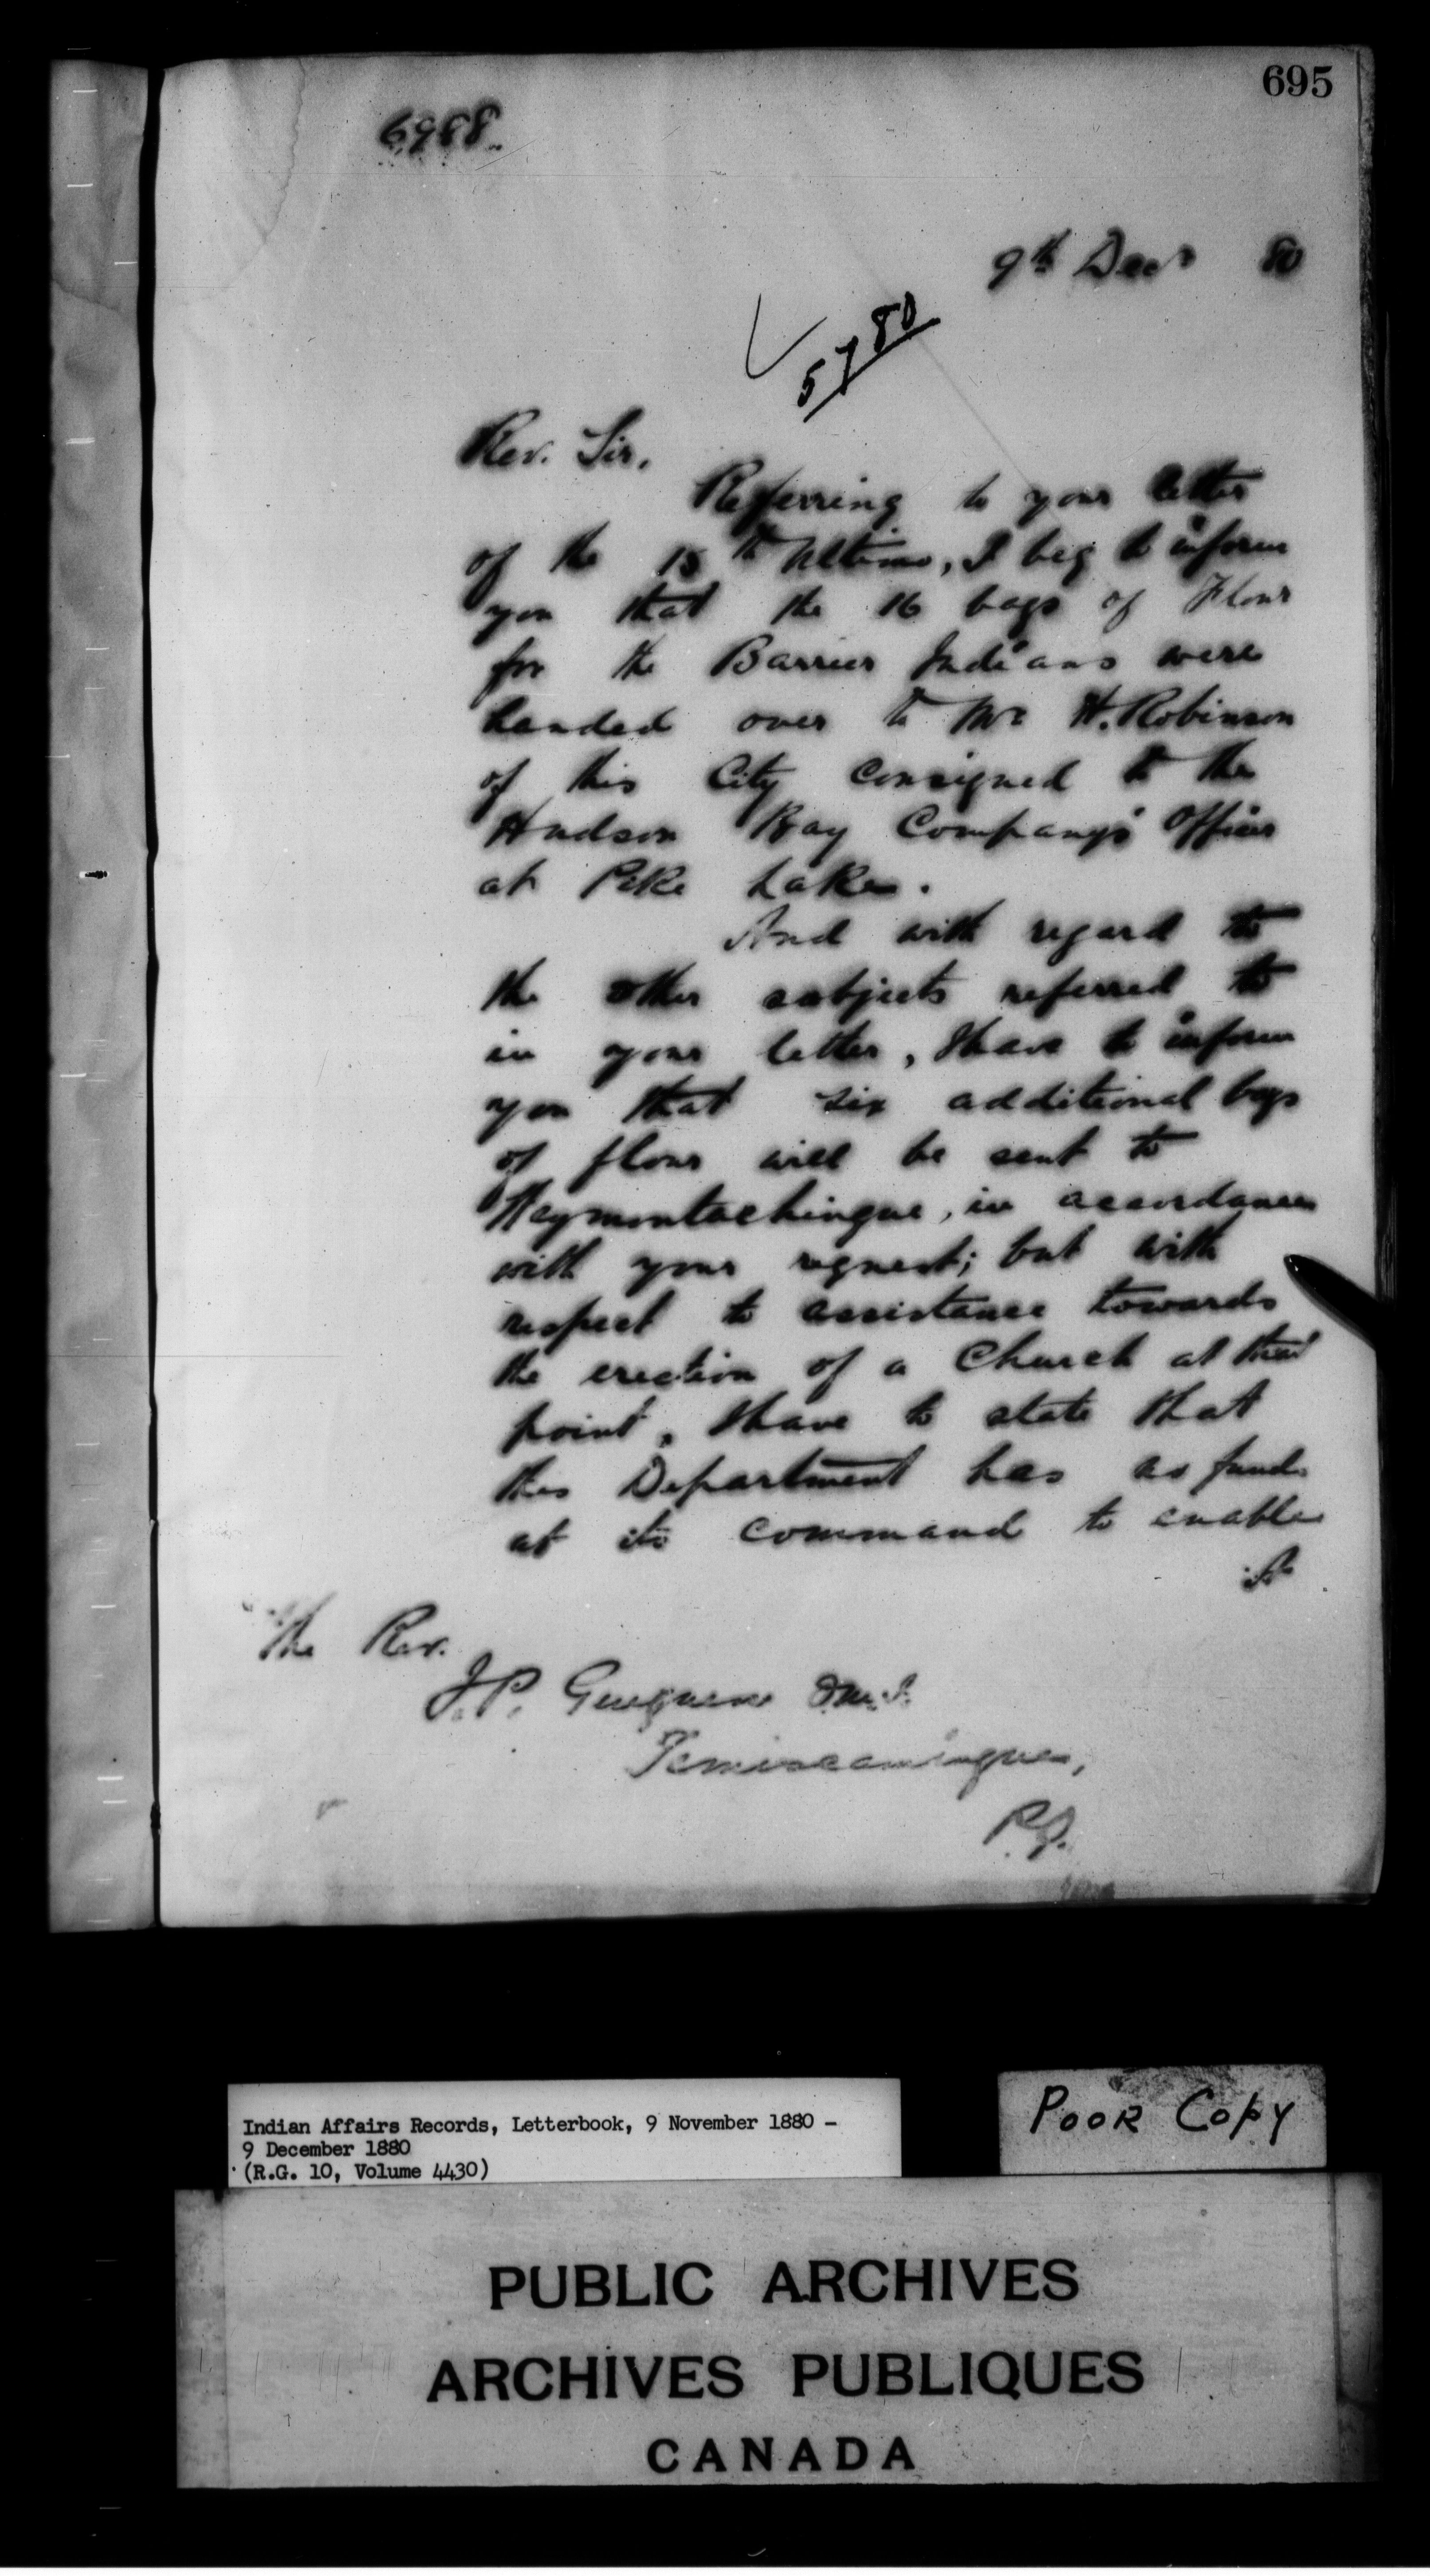 695
6988.
9th Decr 80
57 80
Rev. Sir,
Referring to your letter
of the 15th Ultimo, I beg to inform
you that the 16 bags of Flour
for the Barrier Indians were
handed over to Mr H. Robinson
of this City consigned to the
Hudson Bay Company's Officer
at Pike Lake.
And with regard to
the other subjects referred to
in your letter, I have to inform
you that six additional bags
of flour will be sent to
Weymontachingue, in accordance
with your request; but with
respect to assistance towards
the erection of a Church at that
point, I have to state that
this Department has no funds
at its command to enable
it
The Rev.
J.P. Gueguen O.M.I.
Temiscamingue,
P.Q.
Indian Affairs Records, Letterbook, 9 November 1880 -
9 December 1880
(R.G. 10, Volume 4430)
POOR COPY
PUBLIC ARCHIVES
ARCHIVES PUBLIQUES
CANADA